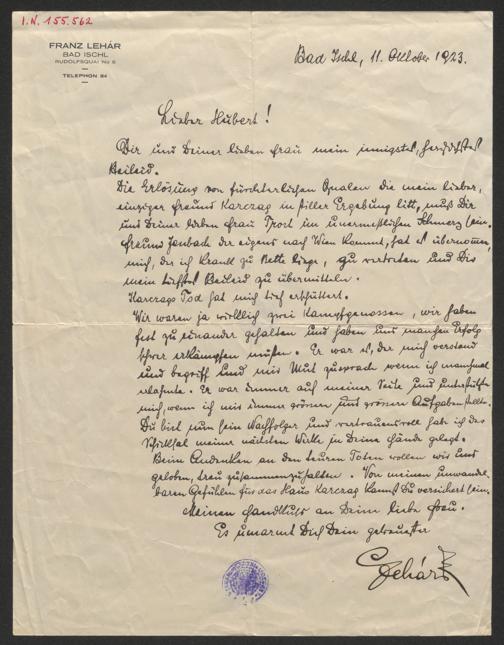 I.N. 155.562
FRANZ LEHÁR
BAD ISCHL
RUDOLFSQUAI No 8
TELEPHON 84
Bad Ischl, 11. Oktober 1923.
Lieber Hubert!
Dir und Deiner lieben Frau mein innigstes, herzlichstes
Beileid.
Die Erlösung von fürchterlichen Qualen die mein lieber,
einziger Freund Karczag in stiller Ergebung litt, muß Dir
und Deiner lieben Frau Trost im unermeßlichen Schmerz sein.
Freund Jenbach der eigens nach Wien kommt, hat es übernommen,
mich, der ich krank zu Bette liege, zu vertreten und Dir
mein tiefstes Beileid zu übermitteln.
Karczags Tod hat mich tief erschüttert.
Wir waren ja wirklich zwei Kampfgenossen, wir haben
fest zu einander gehalten und haben uns manchen Erfolg
schwer erkämpfen müssen. Er war es, der mich verstand
und begriff und mir Mut zusprach wenn ich manchmal
erlahmte. Er war immer auf meiner Seite und unterstützte
mich, wenn ich mir immer grössere und grössere Aufgaben stellte.
Du bist nun sein Nachfolger und vertrauensvoll hab ich das
Schicksal meiner nächsten Werke in Deine Hände gelegt.
Beim Andenken an den teuren Toten wollen wir uns
geloben, treu zusammenzuhalten. Von meinen unwandel-
baren Gefühlen für das Haus Karczag kannst Du versichert sein.
Meinen Handkuss an Deine liebe Frau.
Es umarmt Dich Dein getreuester
Lehár